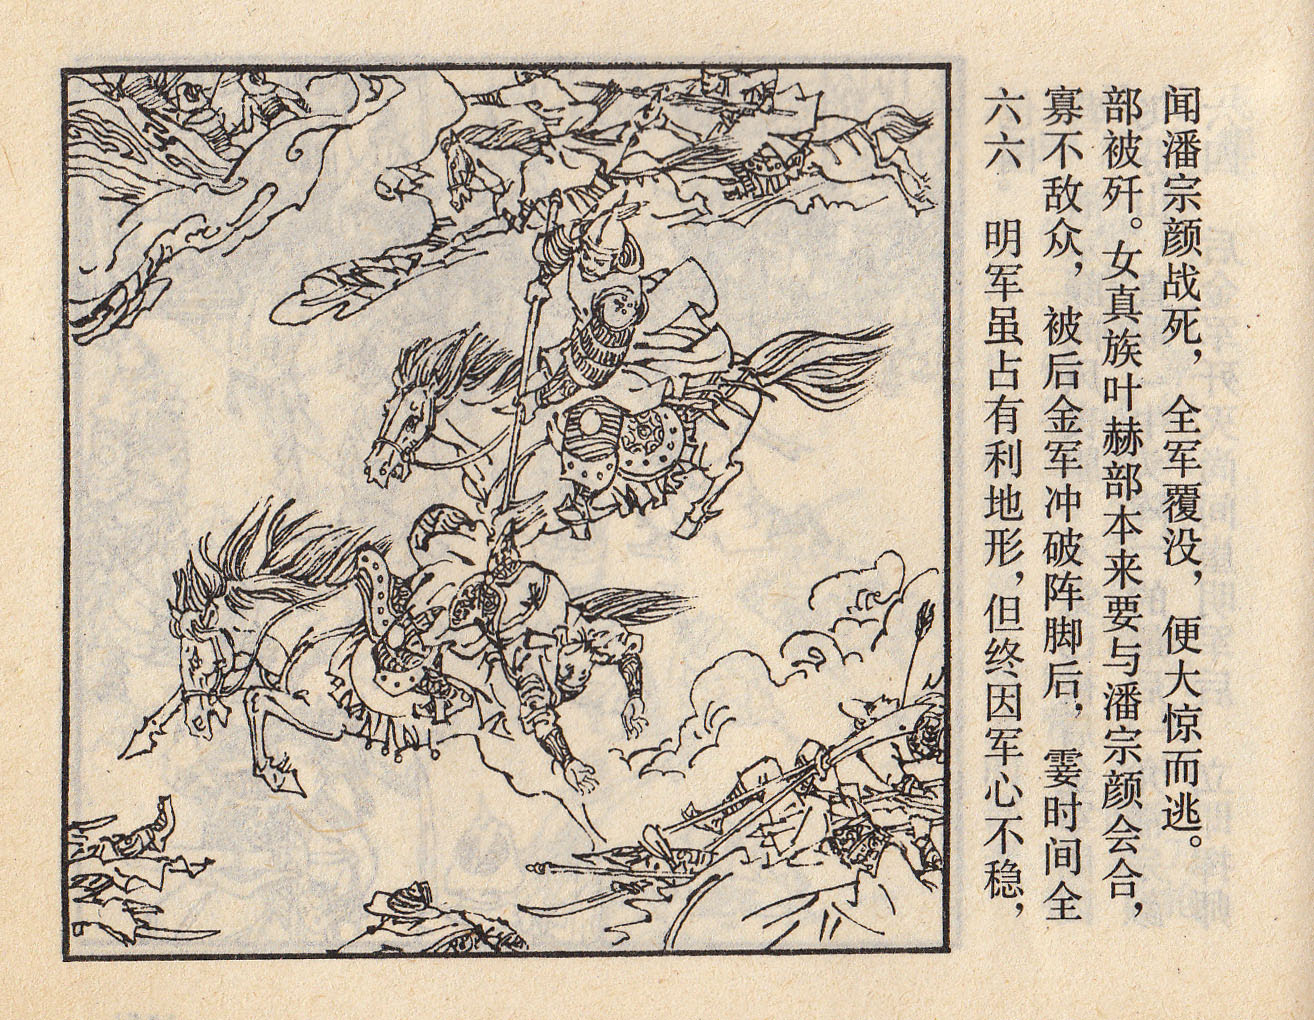 六六 明军虽占有利地形，但终因军心不稳，
寡不敌众，被后金军冲破阵脚后，霎时间全
部被歼。女真族叶赫部本来要与潘宗颜会合，
闻潘宗颜战死，全军覆没，便大惊而逃。